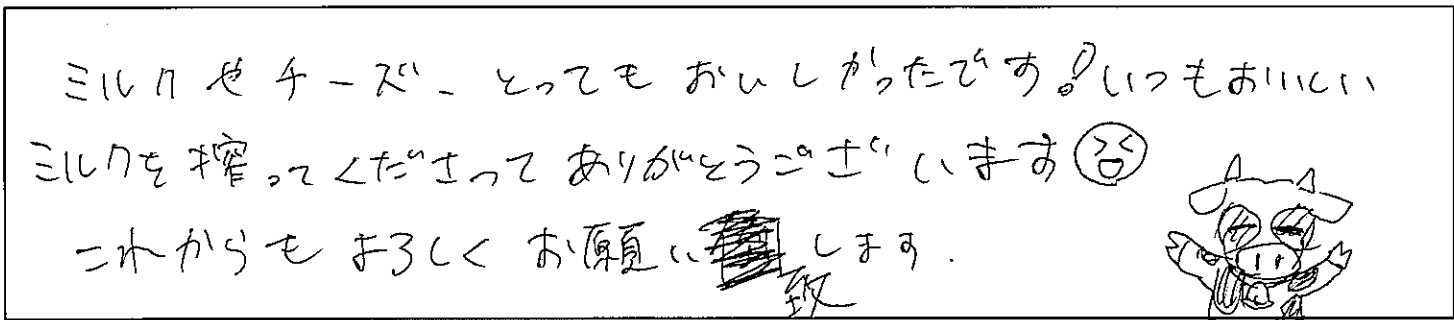 ミルクやチーズ、とってもおいしかったです!いつもおいしい
ミルクを搾ってくださってありがとうございます
これからもよろしくお願い致します.